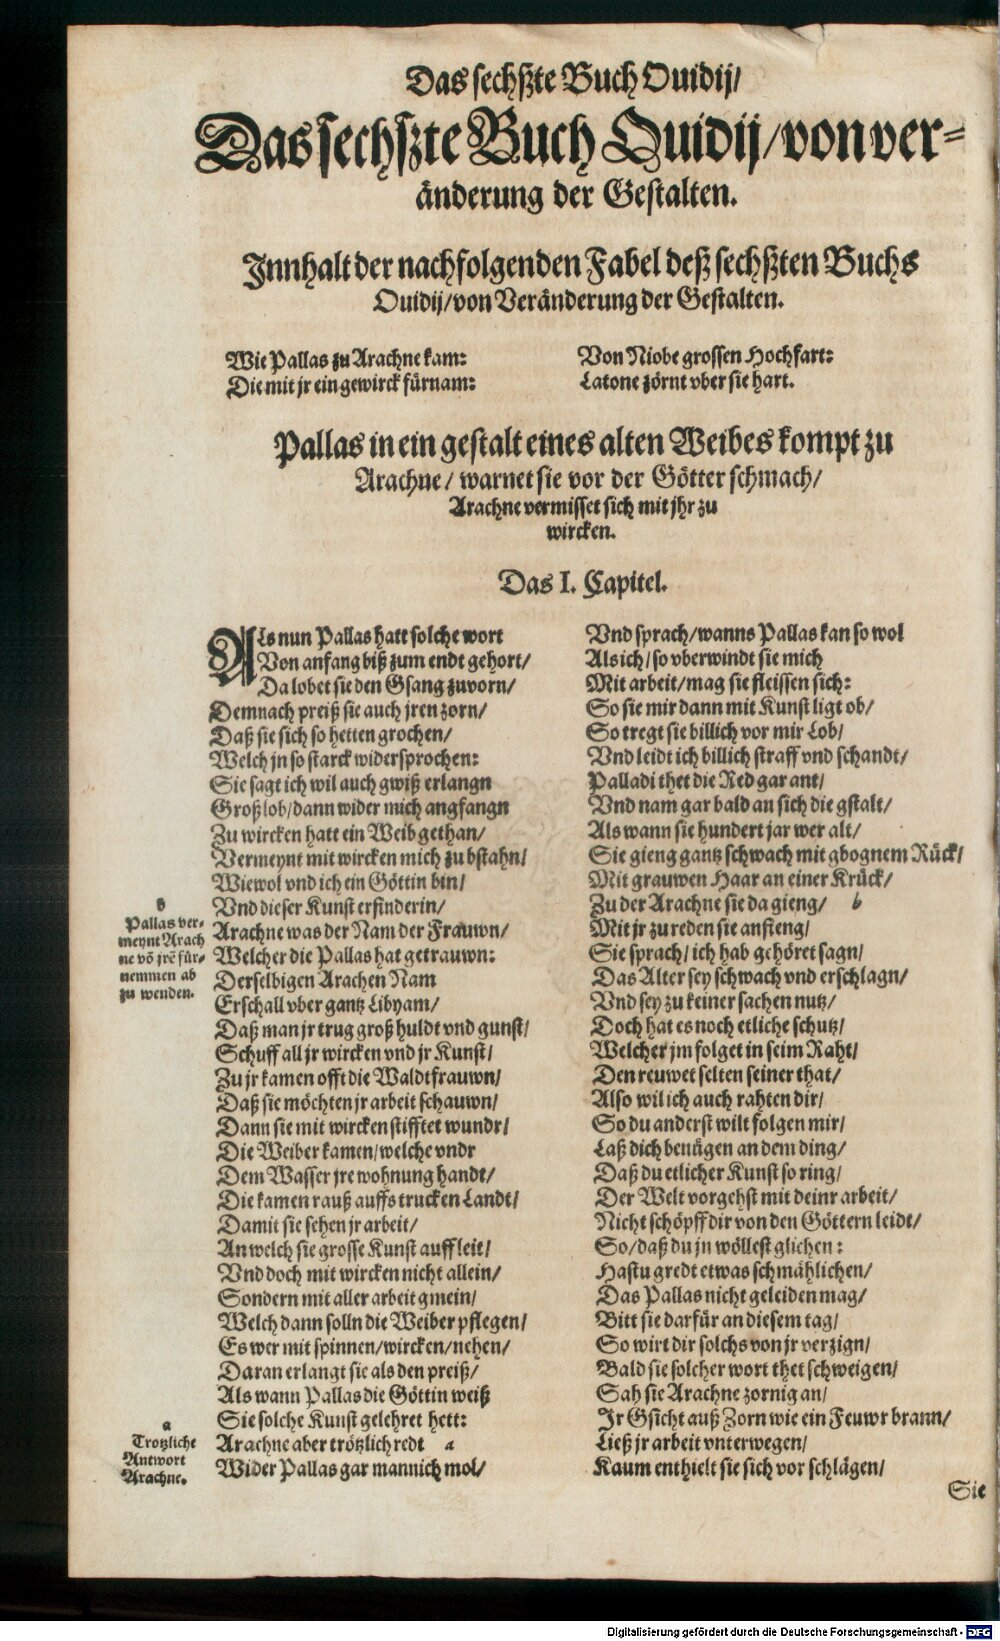 Das sechßte Buch Ouidij/
Das sechßte Buch Ouidij/von ver-
änderung der Gestalten.
Innhalt der nachfolgenden Fabel deß sechßten Buchs
Ouidij/von Veränderung der Gestalten.
Wie Pallas zu Arachne kam:
Die mit jr ein gewirck fürnam:
Von Niobe grossen Hochfart:
Latone zörnt vber sie hart.
Pallas in ein gestalt eines alten Weibes kompt zu
Arachne/ warnet sie vor der Götter schmach/
Arachne vermisset sich mit jhr zu
wircken.
Das I. Capitel.
Als nun Pallas hatt solche wort
Von anfang biß zum endt gehort/
Da lobet sie den Gsang zuvorn/
Demnach preiß sie auch jren zorn/
Daß sie sich so hetten grochen/
Welch jn so starck widersprochen:
Sie sagt ich wil auch gwiß erlangn
Groß lob/dann wider mich angfangn
Zu wircken hatt ein Weib gethan/
Vermeynt mit wircken mich zu bstahn/
Wiewol vnd ich ein Göttin bin/
Vnd dieser Kunst erfinderin/
Arachne was der Nam der Frauwn/
Welcher die Pallas hat getrauwn:
Derselbigen Arachen Nam
Erschall vber gantz Libyam/
Daß man jr trug groß huldt vnd gunst/
Schuff all jr wircken vnd jr Kunst/
Zu jr kamen offt die Waldtfrauwn/
Daß sie möchten jr arbeit schauwn/
Dann sie mit wircken stifftet wundr/
Die Weiber kamen/welche vndr
Dem Wasser jre wohnung handt/
Die kamen rauß auffs trucken Landt/
Damit sie sehen jr arbeit/
An welch sie grosse Kunst auff leit/
Vnd doch mit wircken nicht allein/
Sondern mit aller arbeit gmein/
Welch dann solln die Weiber pflegen/
Es wer mit spinnen/wircken/nehen/
Daran erlangt sie als den preiß/
Als wann Pallas die Göttin weiß
Sie solche Kunst gelehret hett:
Arachne aber trötzlich redt a
Wider Pallas gar mannich mol/
Pallas ver-
meynt Arach
ne võ jrẽ für-
nemmen ab
zu wenden.
a
Trotzliche
Antwort
Arachne.
Vnd sprach/wanns Pallas kan so wol
Als ich/so vberwindt sie mich
Mit arbeit/mag sie fleissen sich:
So sie mir dann mit Kunst ligt ob/
So tregt sie billich vor mir Lob/
Vnd leidt ich billich straff vnd schandt/
Palladi thet die Red gar ant/
Vnd nam gar bald an sich die gstalt/
Als wann sie hundert jar wer alt/
Sie gieng gantz schwach mit gbognem Rück/
Mit grauwen Haar an einer Krück/
Zu der Arachne sie da gieng/ b
Mit jr zu reden sie anfieng/
Sie sprach/ich hab gehöret sagn/
Das Alter sey schwach vnd erschlagn/
Vnd sey zu keiner sachen nutz/
Doch hat es noch etliche schutz/
Welcher jm folget in seim Raht/
Den reuwet selten seiner that/
Also wil ich auch rahten dir/
So du anderst wilt folgen mir/
Laß dich benügen an dem ding/
Daß du etlicher Kunst so ring/
Der Welt vorgehst mit deinr arbeit/
Nicht schöpff dir von den Göttern leidt/
So/daß du jn wöllest glichen:
Hastu gredt etwas schmählichen/
Das Pallas nicht geleiden mag/
Bitt sie darfür an diesem tag/
So wirt dir solchs von jr verzign/
Bald sie solcher wort thet schweigen/
Sah sie Arachne zornig an/
Ir Gsicht auß Zorn wie ein Feuwr brann/
Ließ jr arbeit vnterwegen/
Kaum enthielt sie sich vor schlägen/
Sie
Digitalisierung gefördert durch die Deutsche Forschungsgemeinschaft - DFG